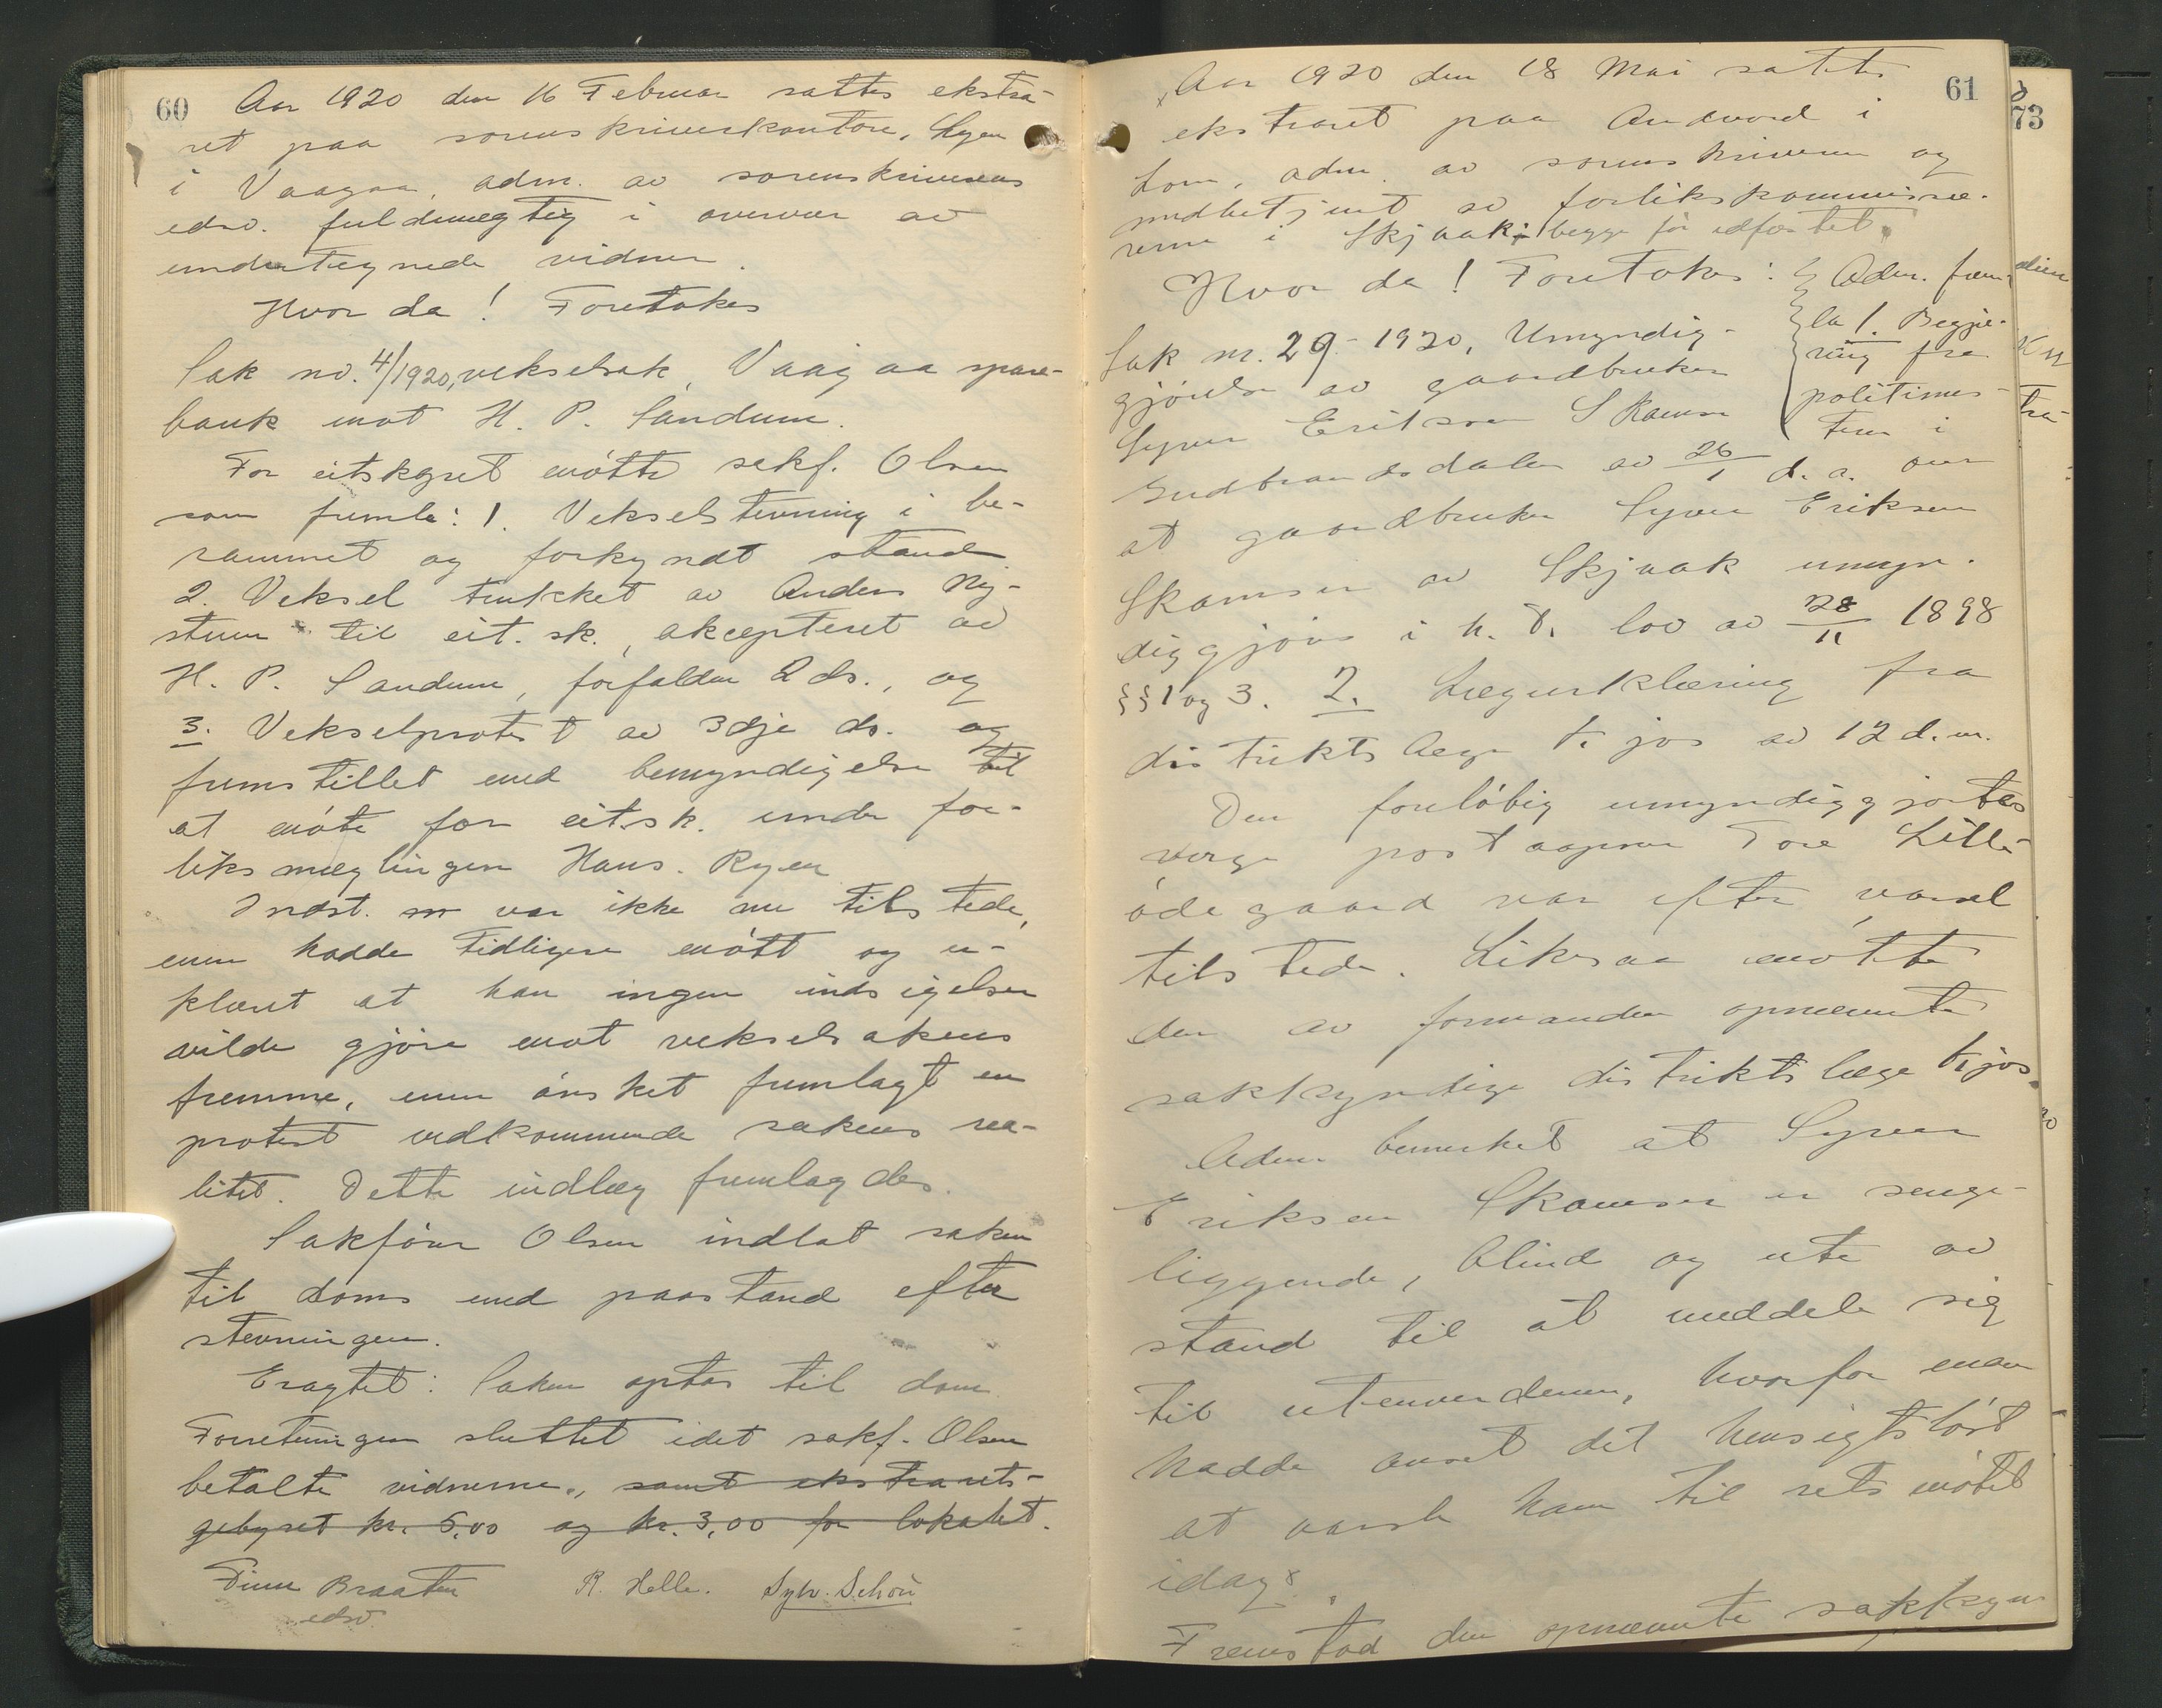 60
Aar 1920 den 16 Februar sattes ekstra-
ret paa sorenskriverkontoret, Ryen
i Vaagaa, adm. av sorenskriverens
edsv. fuldmegtig i overvær av
undertegnede vidner.
Hvor da! Foretokes
Sak no. 4/1920, vekselsak, Vaagaa spare-
bank mot H. P. Sandum.
For citskapet møtte sakf. Olsen
som fremla: 1. Vekselstevning i be-
rammet og forkyndt stand
2. Veksel trukket av Anders Ny-
stuen til cit. sk., akcepteret av
H. P. Sandum, forfalden 2 ds., og
3. Vekselprotest av 3dje ds. og
fremstillet med bemyndigelse til
at møte for cit.sk. under for-
liksmeglingen Hans. Ryen
Indst. var ikke nu tilstede,
men hadde tidligere møtt og er-
klæret at han ingen indsigelser
vilde gjøre mot vekselsakens
fremme, men ønsket fremlagt en
protest vedkommende sakens rea-
litet. Dette indlæg fremlagdes.
Sakfører Olsen indlot saken
til doms med paastand efter
stevningen.
Eragtet: Saken optas til dom
Forretningen sluttet idet sakf. Olsen
betalte vidnerne., samt ekstrarets-
gebyret kr. 5,00 og kr. 3,00 for lokalet.
Finn Braaten R. Helle. Sylv. Schou
edsv.
61
Aar 1920 den 18 Mai sattes
ekstraret paa Andvord i
Lom, adm. av sorenskriveren og
medbetjent av forlikskommissæ-
rerne i Skjaak, begge før edfæstet.
Hvor da! Foretokes:
Sak nr. 29 - 1920, Umyndig-
gjørelse av gaardbruker
Syver Eriksen Skamsar
Adm. frem-
la 1. Begjæ-
ring fra
politimes-
teren i
Gudbrandsdalen av 26/1 d. a. om
at gaardbruker Syver Eriksen
Skamsar av Skjaak umyn-
diggjøres i h. t. lov av 28/11 1898
§§ 1 og 3. 2. Lægeerklæring fra
distriktslæge Kjos av 12 d. m.
Den foreløbig umyndiggjortes
verge postaapner Tore Lille-
ødegaard var efter varsel
tilstede. Likesaa møtte
den av formanden opnævnte
sakkyndige distriktslæge Kjos.
Adm bemerket at Syver
Eriksen Skamsar er senge-
liggende, blind og ute av
stand til at meddele sig
til utenverdenen, hvorfor man
hadde anset det hensigtsløst
at varsle ham til retsmøtet
idag.
Fremstod den opnævnte sakkyn-
73